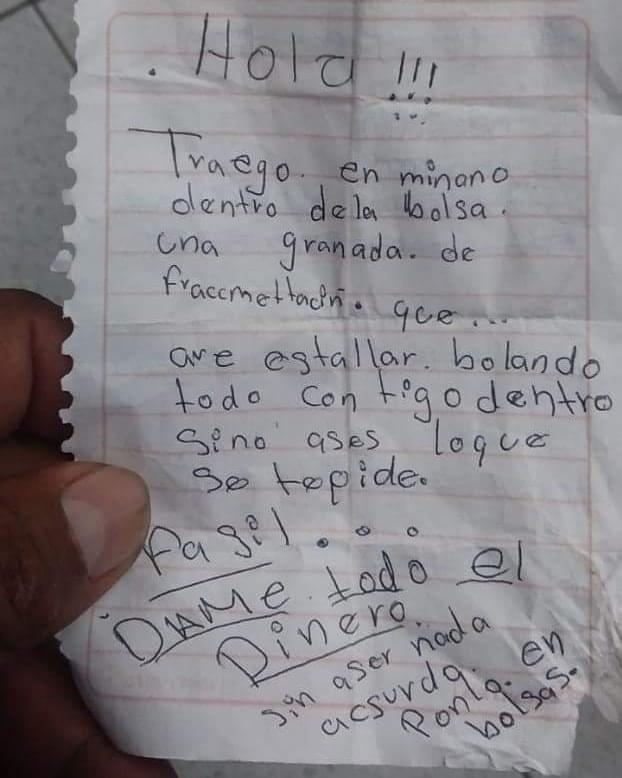 . Hola !!!
Traego. en minano
dentro dela bolsa.
una granada. de
fraccmettacin. que...
are estallar. bolando
todo con tigo dentro
sino ases loque
se tepide.
Fasil. . .
DAME. todo el
Dinero.
sin aser nada
acsurdq. en
Ponlq. bolsas.